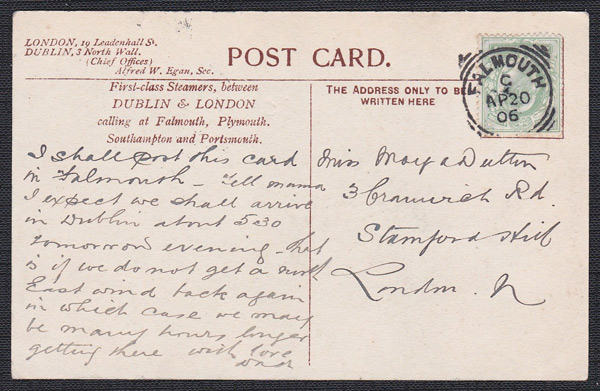 LONDON, 19 Leadenhall St.
DUBLIN, 3 North Wall.
(Chief Offices)
Alfred W. Egan, Sec.
POST CARD.
First-class Steamers, between
DUBLIN & LONDON
calling at Falmouth, Plymouth.
Southampton and Portsmouth.
THE ADDRESS ONLY TO BE
WRITTEN HERE
FALMOUTH
C
AP 20
06
I shall post this card
in Falmouth - Tell mama
I expect we shall arrive
in Dublin about 5 30
tomorrow evening - that
is if we do not get a north
East wind back again
in which case we may
be many hours longer
getting there with love
Miss Dutton
3 Cranwich Rd.
Stamford Hill
London. N